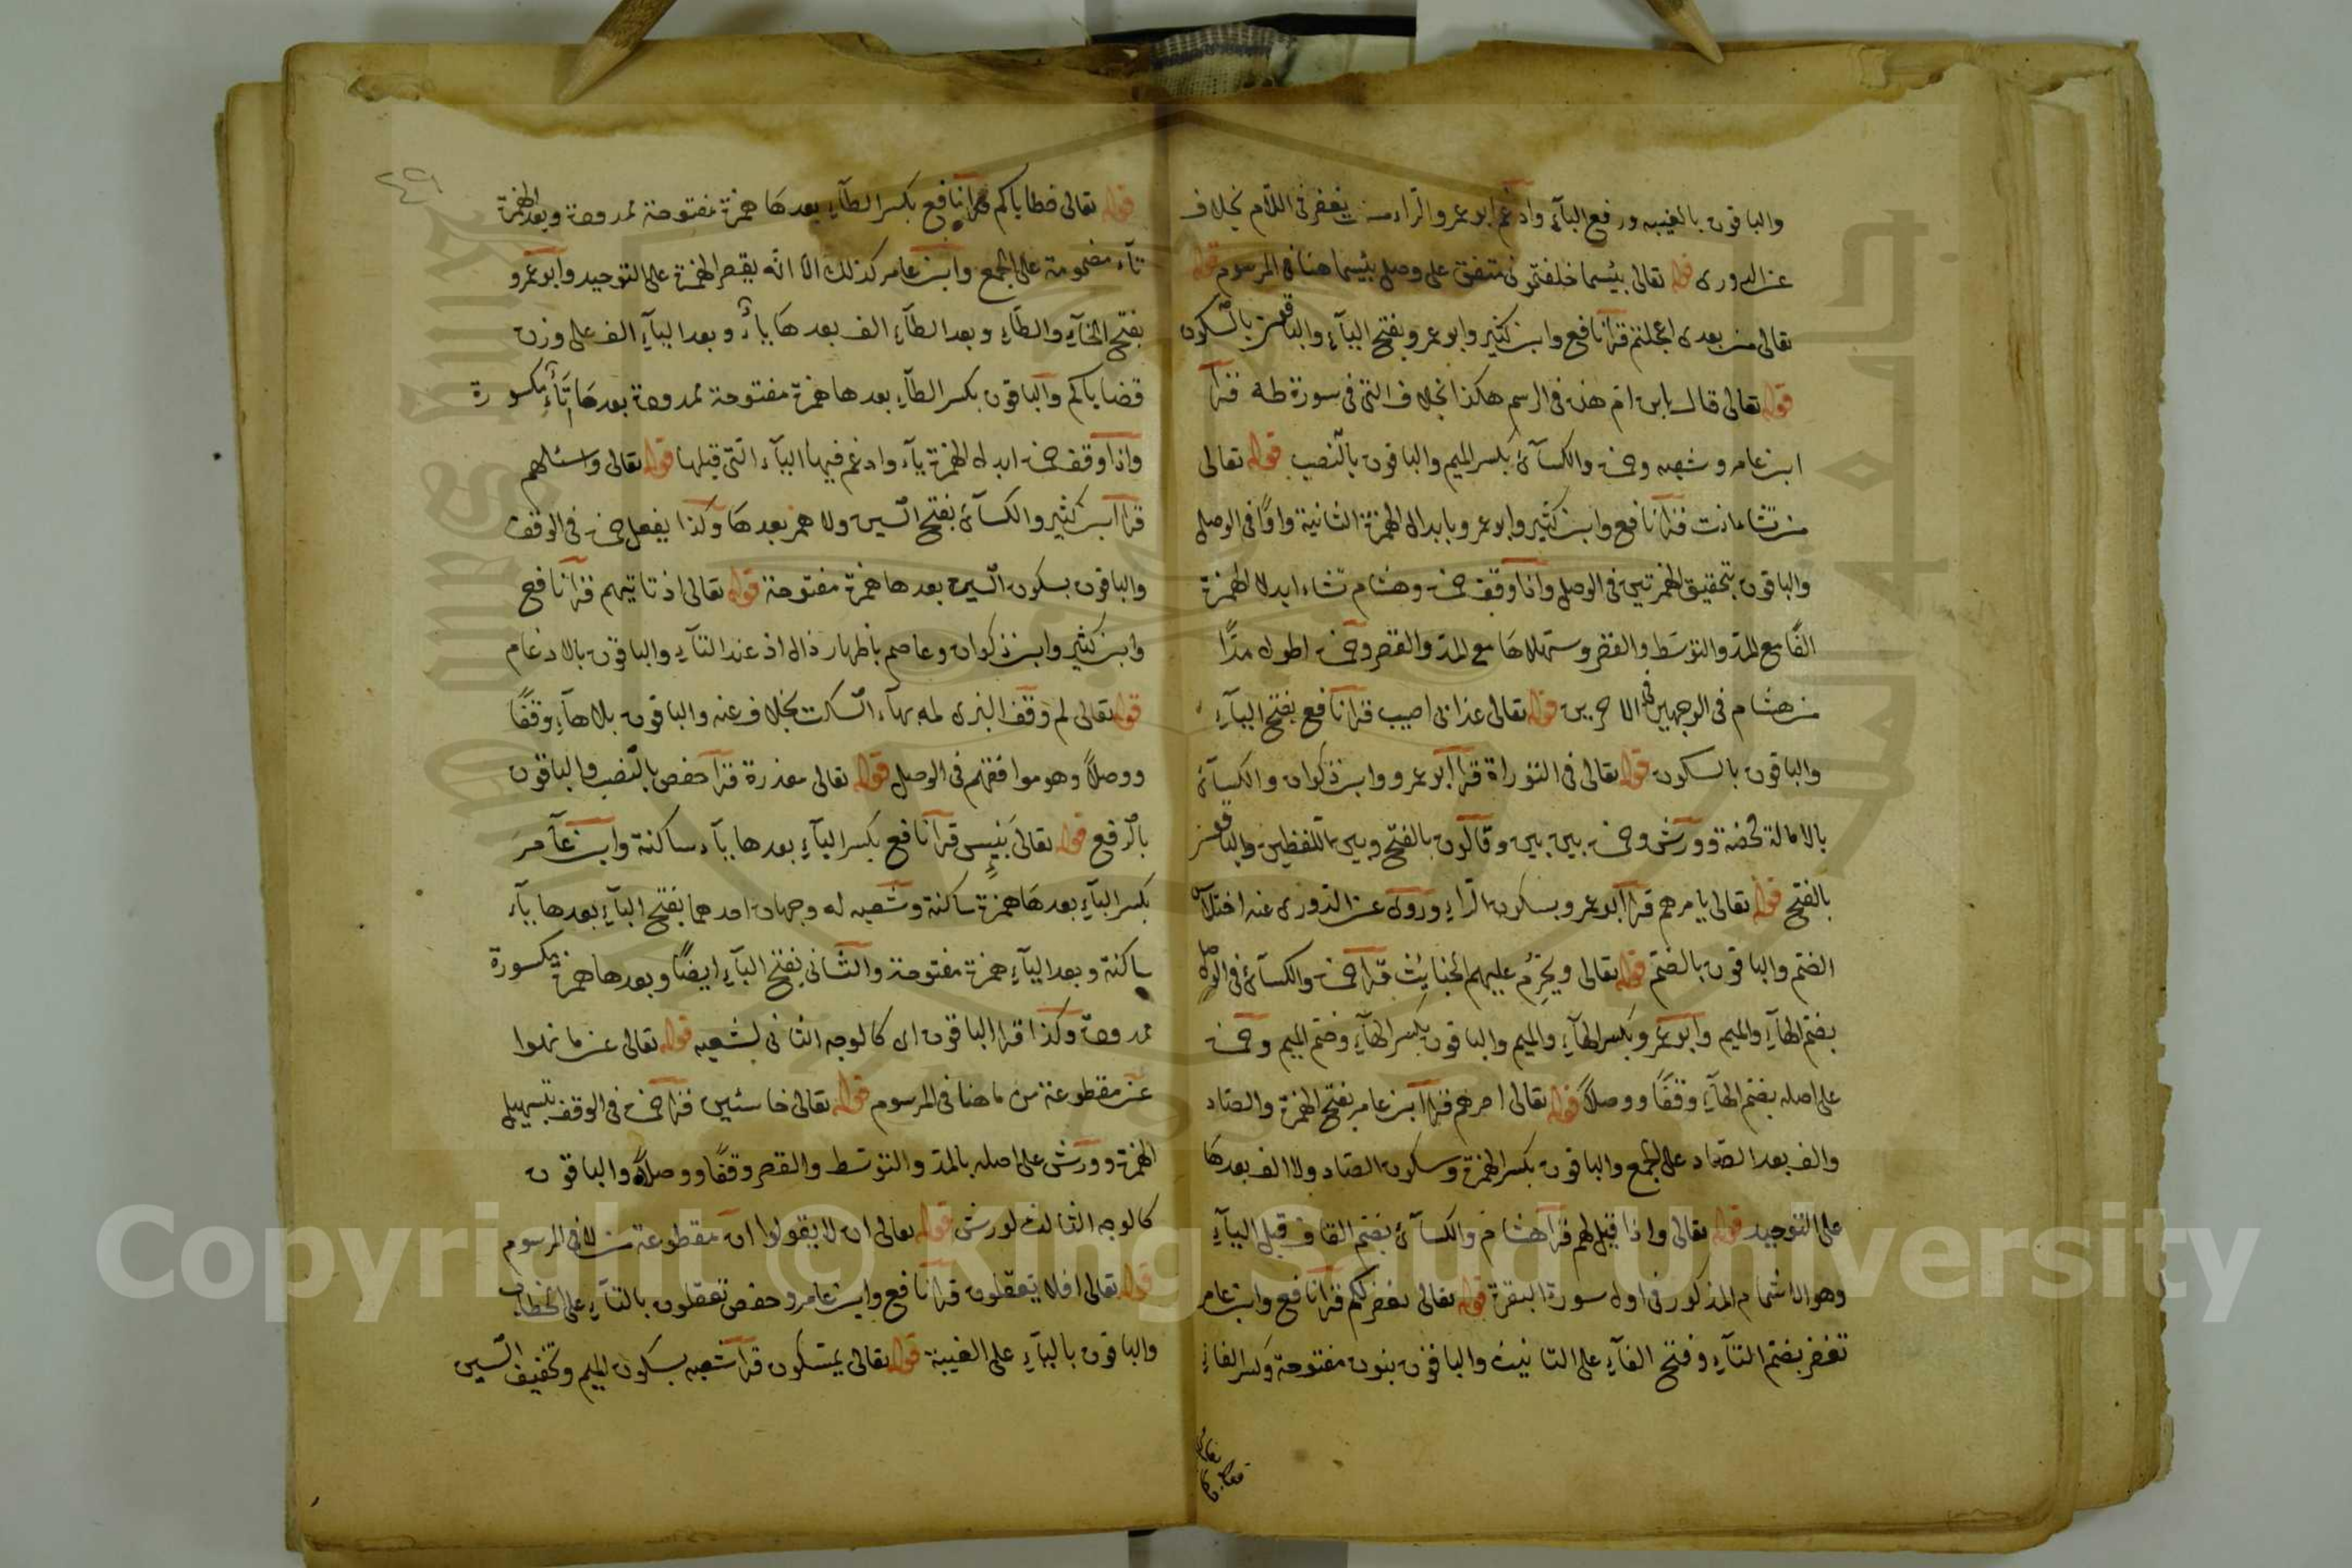 والباقون بالغيبه ورفع البآء وادغم ابو عمرو الراء من يغفر فى اللام بخلاف
عن الدورى قوله تعالى بئسما خلفتمونى متفق على وصل بئسما هنا فى المرسوم قوله
تعالى من بعدى اعجلتم قرأ نافع وابن كثير وابو عمرو بفتح اليآء والباقون بالسكون
قوله تعالى قال يابن ام هذه فى الرسم هكذا بخلاف التى فى سورة طه قرأ
ابن عامر وشعبه وحمزه والكسآئ بكسر الميم والباقون بالنصب قوله تعالى
من تشاء انت قرأ نافع وابن كثير وابو عمرو بابدال الهمزة الثانية واوًا فى الوصل
والباقون بتحقيق الهمزتين فى الوصل واذا وقف حمزه وهشام تشاء ابدلا الهمزة
الفًا مع المد والتوسط والقصر وسهلاها مع المد والقصر وحمزه اطول مدًا
من هشام فى الوجهين الاخرين قوله تعالى عذابى اصيب قرأ نافع بفتح اليآء
والباقون بالسكون قوله تعالى فى التوراة قرأ ابو عمرو وابن ذكوان والكسآئ
بالامالة محضة وورش وحمزه بين بين وقالون بالفتح وبين اللفظين والباقون
بالفتح قوله تعالى يامرهم قرأ ابو عمرو بسكون الرآء وروى عن الدورى عنه اختلاس
الضم والباقون بالضم قوله تعالى ويحرم عليهم الخبايث قرأ حمزه والكسآئ فى الوصل
بضم الهآء والميم وابو عمرو بكسر الهآء والميم والباقون بكسر الهآء وضم الميم وحمزه
على اصله بضم الهآء وقفًا ووصلًا قوله تعالى اصرهم قرأ ابن عامر بفتح الهمزة والصاد
والف بعد الصاد على الجمع والباقون بكسر الهمزة وسكون الصاد ولا الف بعدها
على التوحيد قوله تعالى واذا قيل لهم قرأ هشام والكسآئ بضم القاف قبل اليآء
وهو الاشمام المذكور فى اول سورة البقرة قوله تعالى نغفر لكم قرأ نافع وابن عامر
تغفر بضم التآء وفتح الفآء على التانيث والباقون بنون مفتوحة وكسر الفاء
قوله تعالى خطاياكم قرأ نافع بكسر الطآء بعدها همزة مفتوحة ممدودة وبعد الهمزة
تآء مضمومة على الجمع وابن عامر كذلك الا انه يقصر الهمزة على التوحيد وابو عمرو
بفتح الخآء والطآء وبعد الطآء الف بعدها يآء وبعد اليآء الف على وزن
قضاياكم والباقون بكسر الطآء بعدها همزة مفتوحة ممدودة بعدها تآء مكسورة
واذا وقف حمزه ابدل الهمزة يآء وادغم فيها اليآء التى قبلها قوله تعالى واسئلهم
قرأ ابن كثير والكسآئ بفتح السين ولا همز بعدها وكذا يفعل حمزه فى الوقف
والباقون بسكون السين بعدها همزة مفتوحة قوله تعالى اذ تاتيهم قرأ نافع
وابن كثير وابن ذكوان وعاصم باظهار ذال اذ عند التآء والباقون بالادغام
قوله تعالى لم وقف البزى لمه بهآء السكت بخلاف عنه والباقون بلا هآء وقفًا
ووصلًا وهو موافقهم فى الوصل قوله تعالى معذرة قرأ حفص بالنصب والباقون
بالرفع قوله تعالى بئيس قرأ نافع بكسر البآء بعدها يآء ساكنة وابن عآمر
بكسر البآء بعدها همزة ساكنة وشعبه له وجهان احدهما بفتح البآء بعدها يآء
ساكنة وبعد اليآء همزة مفتوحة والثانى بفتح البآء ايضًا وبعدها همزة مكسورة
ممدودة وكذا قرأ الباقون اى كالوجه الثانى لشعبه قوله تعالى عن ما نهوا
عن مقطوعة من ما هنا فى المرسوم قوله تعالى خاسئين قرأ حمزه فى الوقف بتسهيل
الهمزة وورش على اصله بالمد والتوسط والقصر وقفًا ووصلًا والباقون
كالوجه الثالث لورش قوله تعالى ان لا يقولوا ان مقطوعة من لا فى المرسوم
قوله تعالى افلا يعقلون قرأ نافع وابن عامر وحفص تعقلون بالتآء على الخطاب
والباقون باليآء على الغيبة قوله تعالى يمسكون قرأ شعبه بسكون الميم وتخفيف السين
Copyright © King Saud University